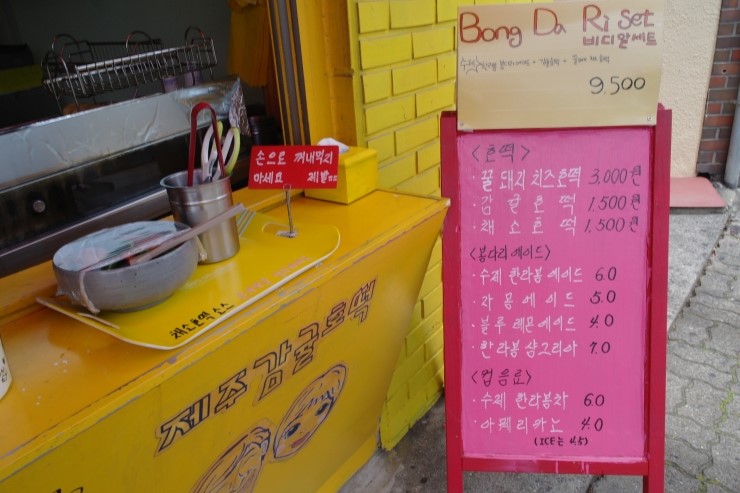 Bong Da Ri Set
비디알세트
9,500
<호떡>
·꿀돼지치즈호떡 3,000원
·감귤호떡 1,500원
·채소호떡 1,500원
<봉다리에이드>
·수제 한라봉에이드 6.0
·자몽에이드 5.0
·블루레몬에이드 4.0
·한라봉샹그리아 7.0
<컵음료>
·수제 한라봉차 6.0
·아메리카노 4.0
(ICE는 4.5)
손으로 꺼내먹지
마세요 제발
채소호떡 소스
제주감귤호떡